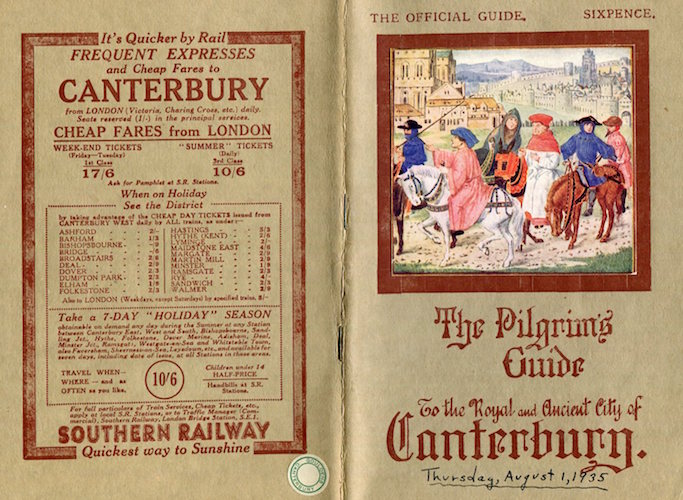 It's Quicker by Rail
FREQUENT EXPRESSES
and Cheap Fares to
CANTERBURY
from LONDON (Victoria, Charing Cross, etc.) daily.
Seats reserved (1/-) in the principal services.
CHEAP FARES from LONDON
WEEK-END TICKETS "SUMMER" TICKETS
(Friday—Tuesday) (Daily)
1st Class 3rd Class
17/6 10/6
Ask for Pamphlet at S.R. Stations.
When on Holiday
See the District
by taking advantage of the CHEAP DAY TICKETS issued from
CANTERBURY WEST daily by ALL trains, as under:—
ASHFORD 2/-
BARHAM 1/3
BISHOPSBOURNE
BRIDGE
BROADSTAIRS
DEAL
DOVER 2/3
DUMPTON PARK
ELHAM
FOLKESTONE 2/3
HASTINGS
HYTHE (KENT) 2/6
LYMINGE 2/-
MAIDSTONE EAST
MARGATE
MARTIN MILL
MINSTER
RAMSGATE 2/3
RYE 4/-
SANDWICH
WALMER
Also to LONDON (Weekdays, except Saturdays) by specified trains,
Take a 7-DAY "HOLIDAY" SEASON
obtainable on demand any day during the Summer at any Station
between Canterbury East, West and South, Bishopsbourne, Sand-
ling Jct., Hythe, Folkestone, Dover Marine, Adisham, Deal,
Minster Jct., Ramsgate, Westgate-on-Sea and Whitstable Town,
also Faversham, Sheerness-on-Sea, Leysdown, etc., and available for
seven days, including date of issue, at all Stations in those areas.
TRAVEL WHEN—
WHERE— and as
OFTEN as you like.
10/6
Children under 14
HALF-PRICE
Handbills at S.R.
Stations.
For full particulars of Train Services, Cheap Tickets, etc.,
apply at local S.R. Stations, or to Traffic Manager (Com-
mercial), Southern Railway, London Bridge Station, S.E.1.
SOUTHERN RAILWAY
Quickest way to Sunshine
THE OFFICIAL GUIDE. SIXPENCE.
The Pilgrim's
Guide
To the Royal and Ancient City of
Canterbury.
Thursday, August 1, 1935